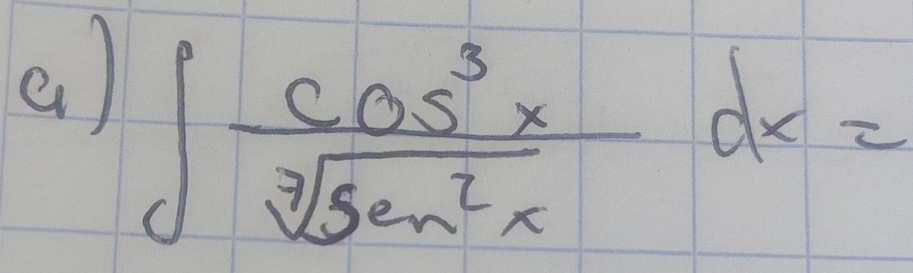 a) ∫ cos³x / ⁷√sen²x dx =